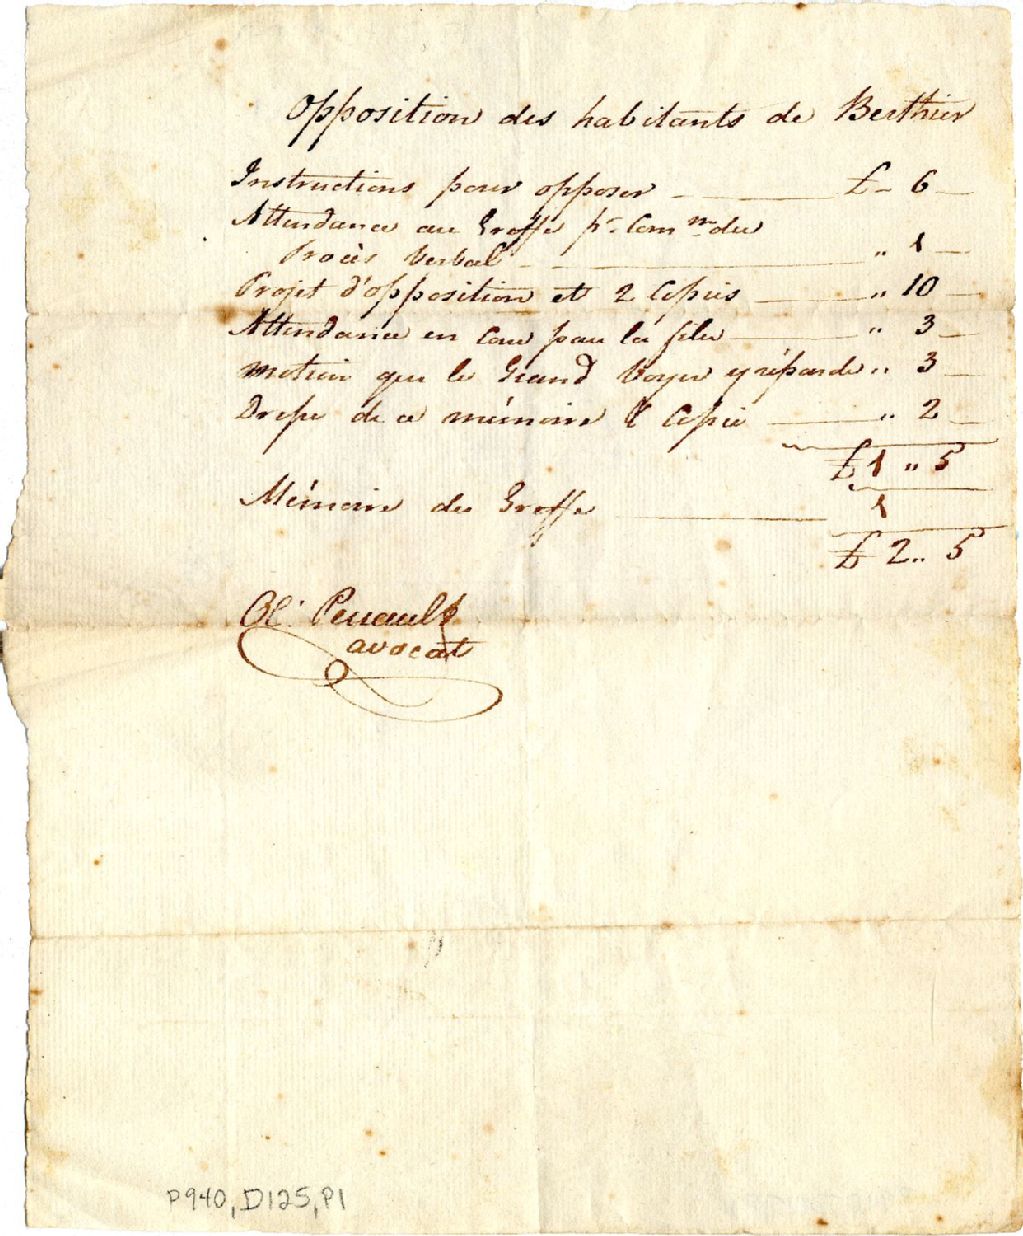 Opposition des habitants de Berthier
Instructions pour opposer £ " 6
Attendance au Greffe pr. Comm.on du
Procès Verbal " 1
Projet d'opposition et 2 Copies " 10
Attendance en Cour pour la filer " 3
Motion que le Grand Voyer y réponde " 3
de ce mémoire & Copie " 2
£1 " 5
Mémoire du Greffe 1
£2 " 5
Ol. Perrault
avocat
P940,D125,P1